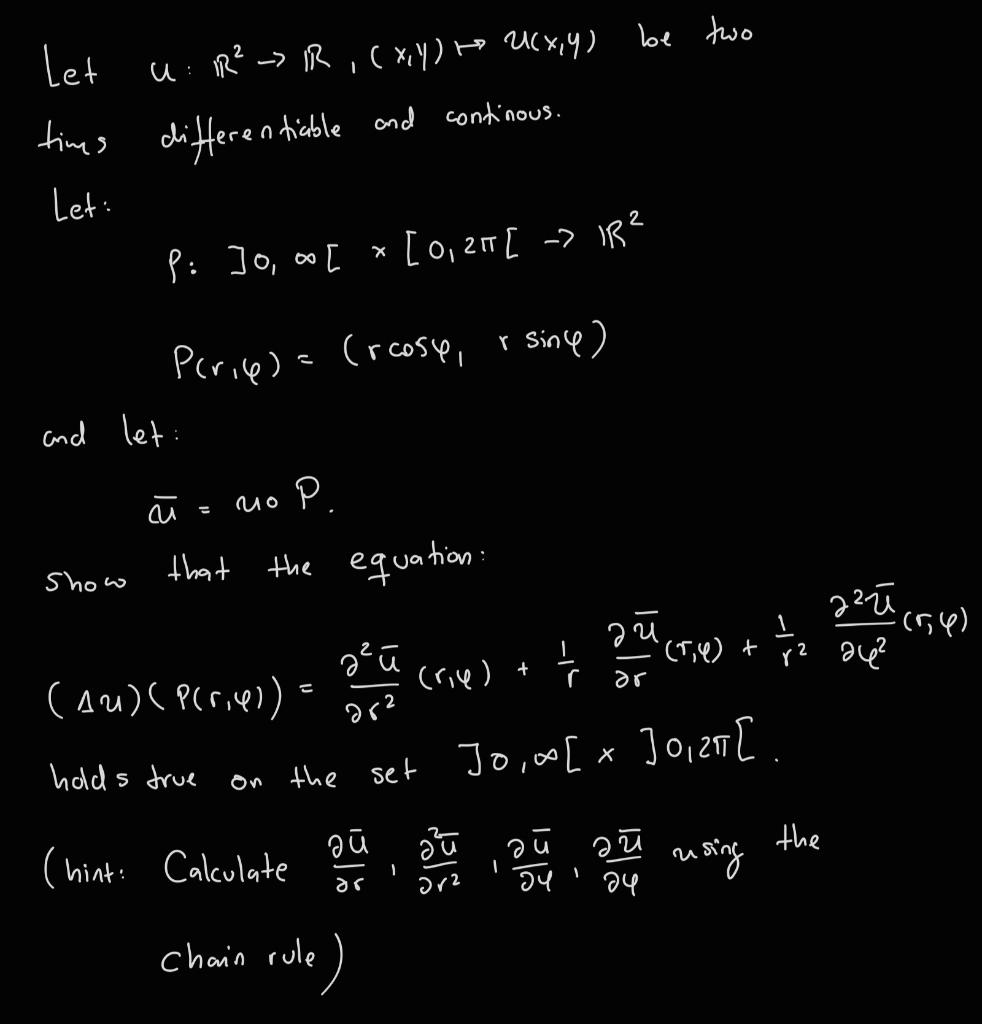 Let u: ℝ² → ℝ, (x,y) ↦ u(x,y) be two
tims differentiable and continous.
Let:
P: ]0, ∞[ × [0, 2π[ → ℝ²
P(r,φ) = (r cosφ, r sinφ)
and let:
ū = u∘P.
Show that the equation:
(Δu)(P(r,φ)) = ∂²ū/∂r² (r,φ) + 1/r ∂ū/∂r (r,φ) + 1/r² ∂²ū/∂φ² (r,φ)
holds true on the set ]0,∞[ × ]0,2π[.
(hint: Calculate ∂ū/∂r, ∂²ū/∂r², ∂ū/∂φ, ∂ū/∂φ using the
chain rule)